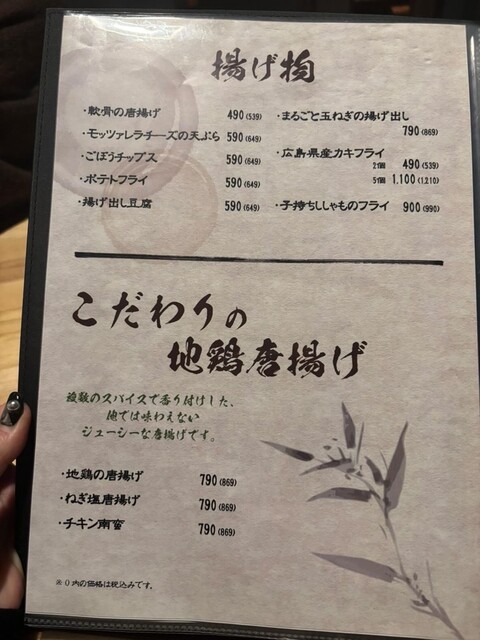 揚げ物
・軟骨の唐揚げ 490(539)
・モッツァレラチーズの天ぷら 590(649)
・ごぼうチップス 590(649)
・ポテトフライ 590(649)
・揚げ出し豆腐 590(649)
・まるごと玉ねぎの揚げ出し
790(869)
・広島県産カキフライ
2個 490(539)
5個 1,100(1,210)
・子持ちししゃものフライ 900(990)
こだわりの
地鶏唐揚げ
複数のスパイスで香り付けした、
他では味わえない
ジューシーな唐揚げです。
・地鶏の唐揚げ 790(869)
・ねぎ塩唐揚げ 790(869)
・チキン南蛮 790(869)
※()内の価格は税込みです。